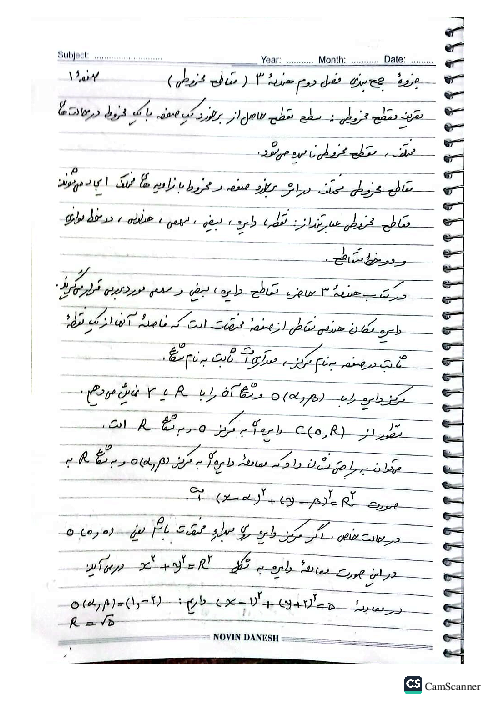 Subject: .......................... Year: ........... Month: ........... Date: .........
جزوه جمع بندی فصل دوم هندسه ۳ ( مقاطع مخروطی ) صفحه ۱
تعریف مقطع مخروطی : سطح مقطع حاصل از برخورد یک صفحه با یک مخروط در حالت های
مختلف ، مقطع مخروطی نامیده می‌شود.
مقاطع مخروطی مختلف در اثر برخورد صفحه و مخروط با زاویه های مختلف ایجاد می‌شوند
مقاطع مخروطی عبارتند از : نقطه ، دایره ، بیضی ، سهمی ، هذلولی ، دو خط موازی
و دو خط متقاطع.
در کتاب هندسه ۳ حاضر، مقاطع دایره ، بیضی و سهمی مورد بررسی قرار می‌گیرند.
دایره مکان هندسی نقاطی از صفحه مختصات است که فاصله آنها از یک نقطه
ثابت در صفحه به نام مرکز ، مقداری ثابت به نام شعاع.
مرکز دایره را با O(α,β) و شعاع آن را با R یا r نمایش می‌دهیم.
منظور از C(O,R) دایره ای به مرکز O و به شعاع R است.
می‌توان به راحتی نشان داد که معادله دایره ای به مرکز O(α,β) و به شعاع R به
صورت (x-α)²+(y-β)²=R² است
در حالت خاص اگر مرکز دایره روی مبدا مختصات باشد یعنی O(0,0)
در این صورت معادله دایره به شکل x²+y²=R² در می آید.
در معادله (x-1)²+(y+2)²=5 داریم : O(α,β)=(1,-2)
R=√5
NOVIN DANESH
CS CamScanner